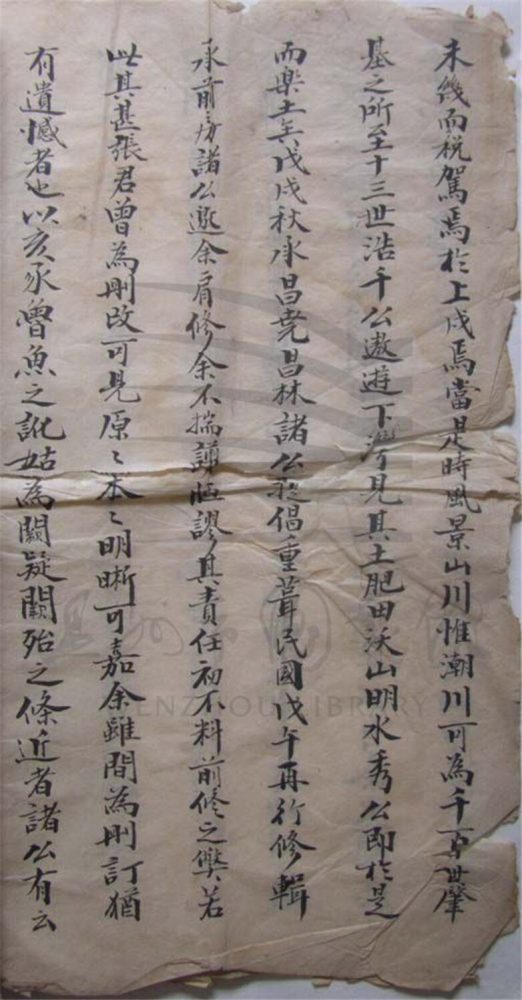 未幾而税駕焉於上戍焉當是時風景山川惟潮川可為千百世肇
基之所至十三世浩千公遨遊下灣見其土肥田沃山明水秀公即於是
而樂土矣戊戌秋永昌堯昌林諸公起倡重葺民國戊午再行修輯
承前房諸公邀余肩修余不揣謭陋謬其責任初不料前修之槼若
此其甚張君曾為刪改可見原〻本〻明晰可嘉余雖間為刪訂猶
有遺憾者也以亥豕魯魚之訛姑為闕疑闕殆之條近者諸公有云
WENZHOU LIBRARY